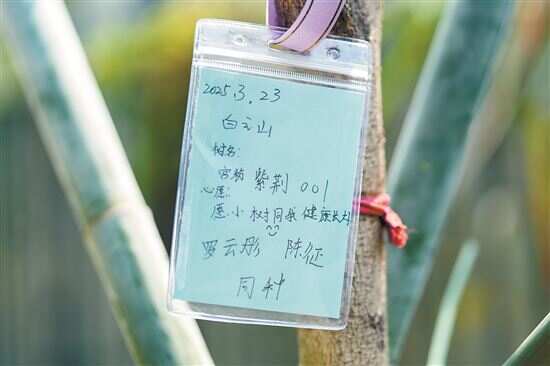 2025.3.23
白云山
树名：
宫粉紫荆 001
心愿：
愿小树同我健康长大
罗云彤 陈征
同种